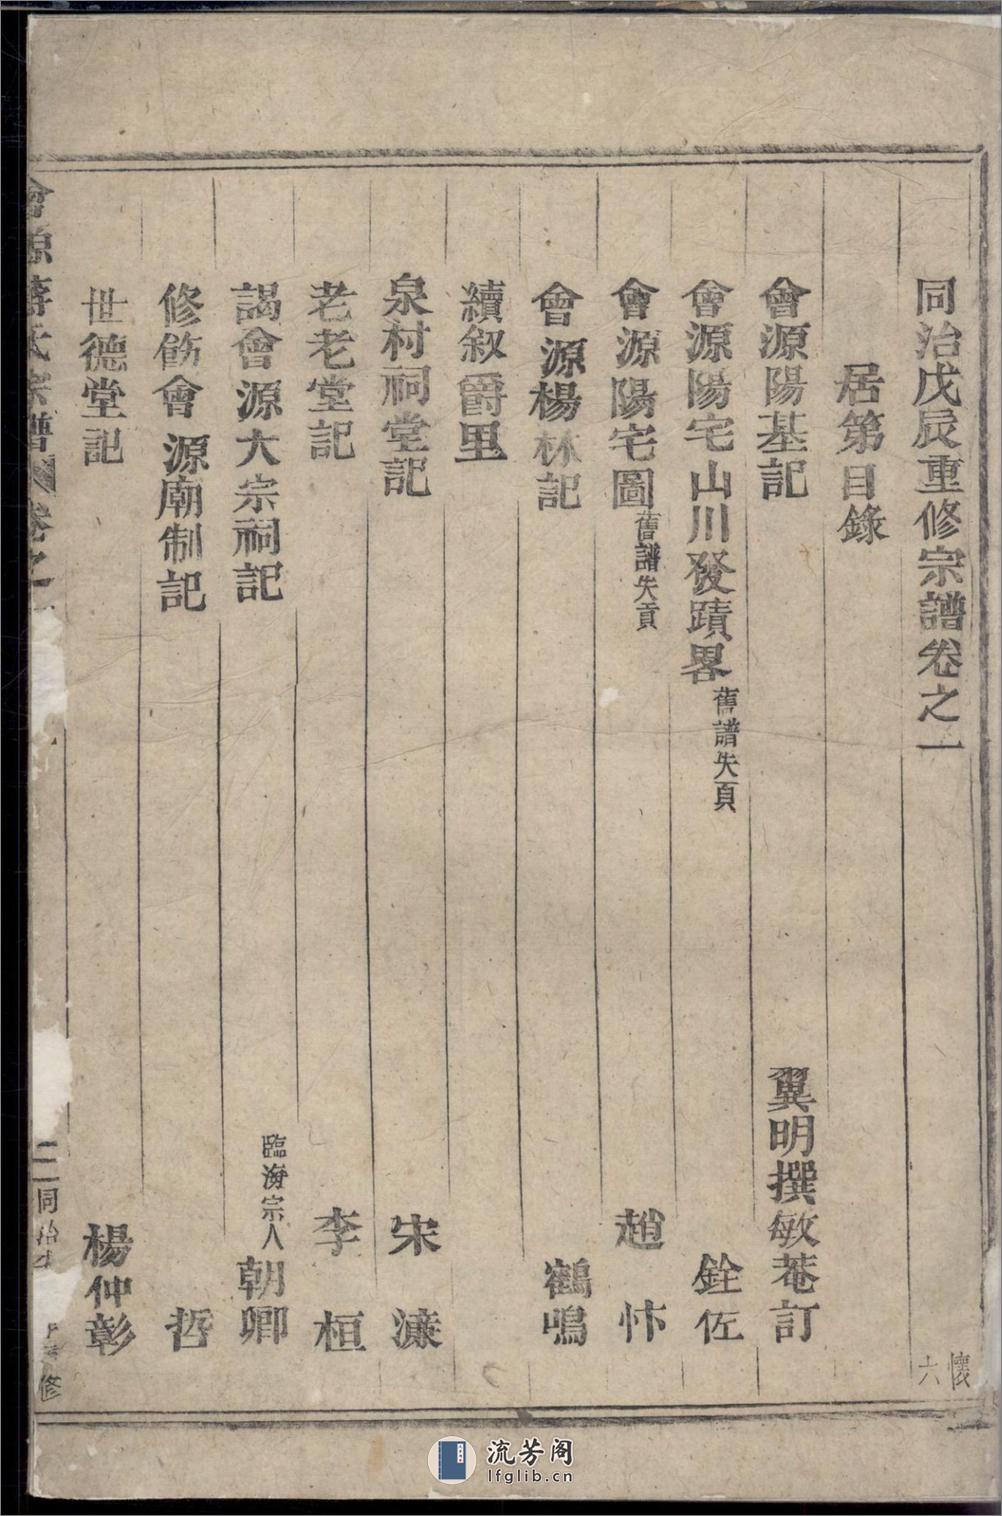 同治戊辰重修宗譜卷之一
懷六
居第目錄
會源陽基記 翼明撰敏菴訂
會源陽宅山川發蹟畧 舊譜失頁 銓佐
會源陽宅圖 舊譜失頁 趙忭
會源楊林記 鶴鳴
續叙爵里
泉村祠堂記 宋濂
老老堂記 李桓
謁會源大宗祠記 臨海宗人 朝卿
修飭會源廟制記 哲
世德堂記 楊仲彰
會源蔣氏宗譜 卷之
二 同治 修
流芳阁
lfglib.cn